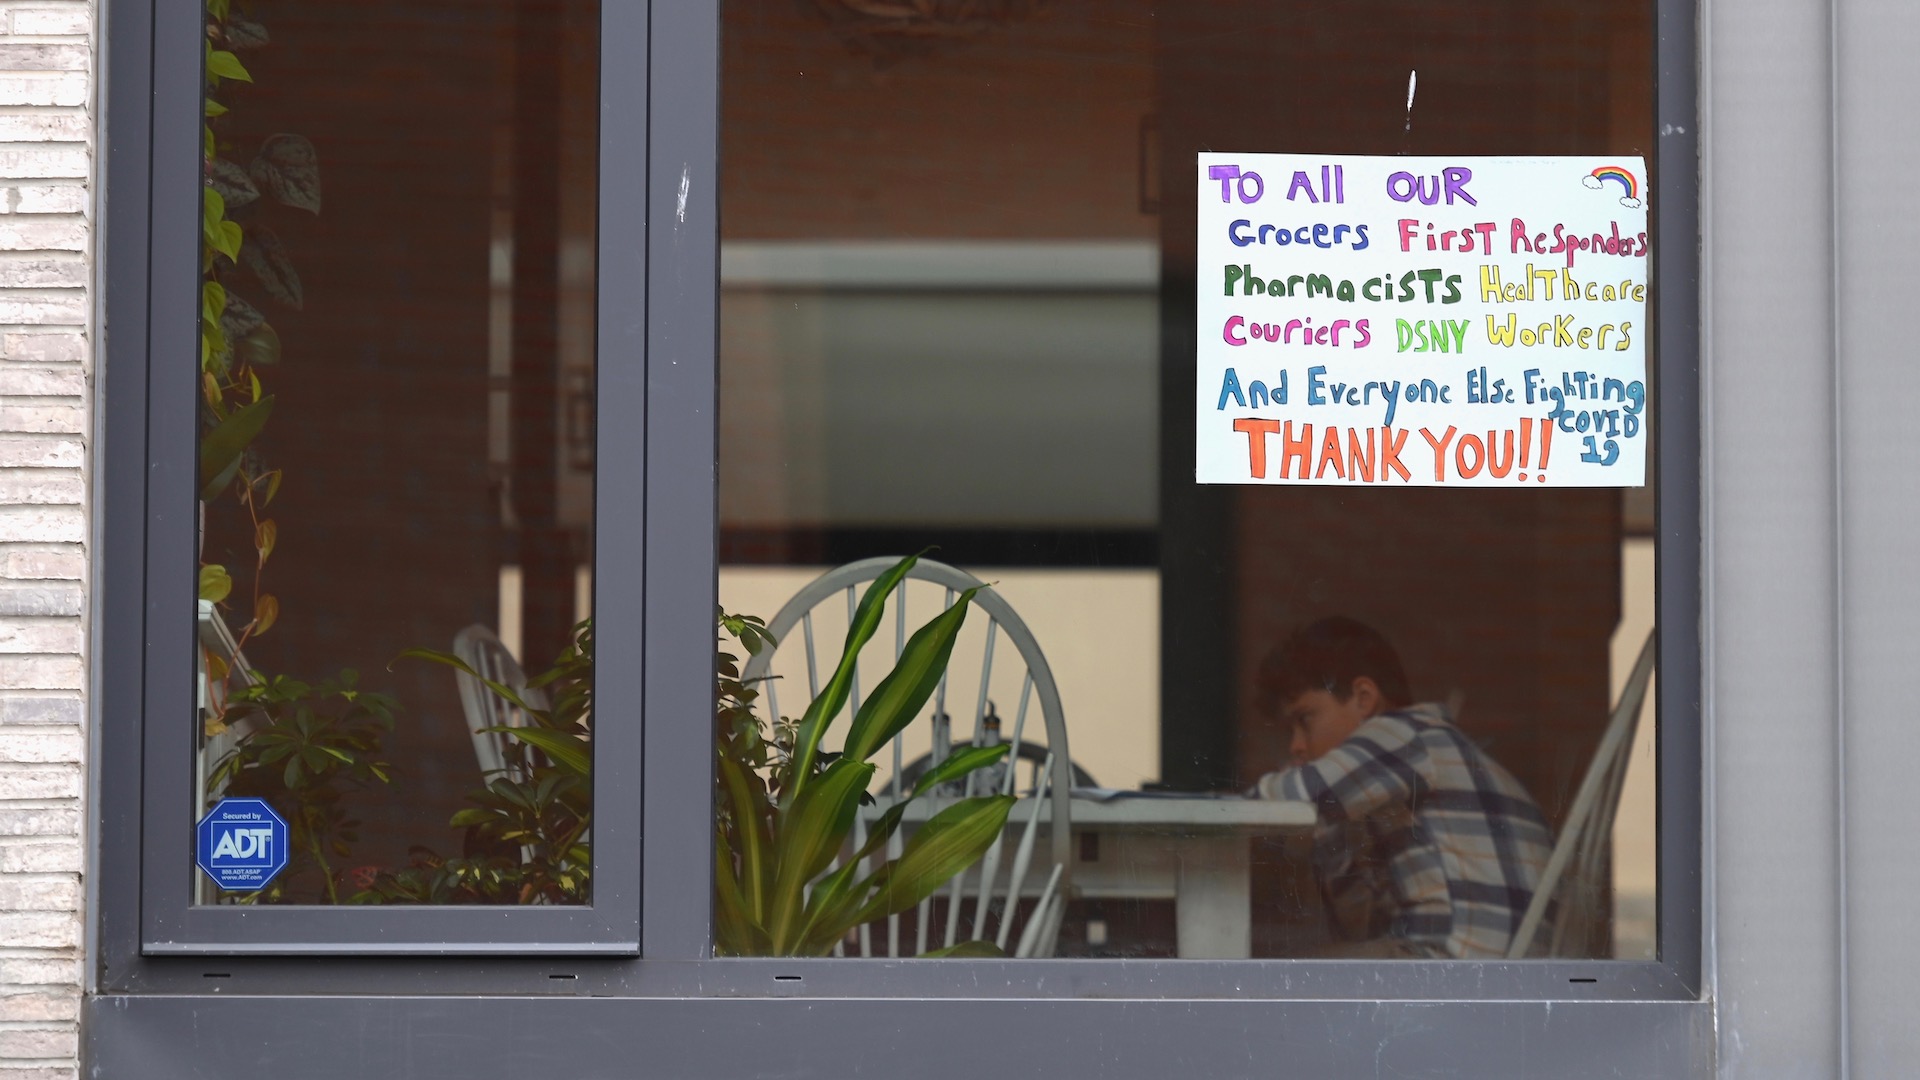 TO All OUR
Grocers First Responders
Pharmacists Healthcare
Couriers DSNY Workers
And Everyone Else Fighting
COVID
THANK YOU!!
19
Secured by
ADT
800.ADT.ASAP
www.ADT.com